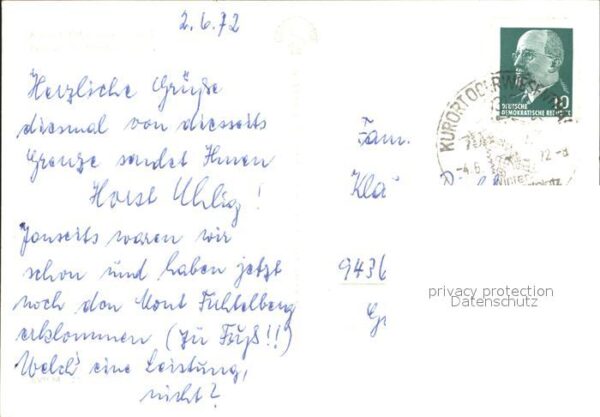 2.6.72
Herzliche Grüße
diesmal von diesseits
Grenze sendet Ihnen
Horst Uhlig!
Janseits waren wir
schon und haben jetzt
noch den Mont Fichtelberg
erklommen (zu Fuß!!)
Welch' eine Leistung,
nicht?
DEUTSCHE
DEMOKRATISCHE REPUBLIK
KURORT OBERWIESENTHAL
-4.6. 72-8
Fam.
Klä
9436
privacy protection
Datenschutz